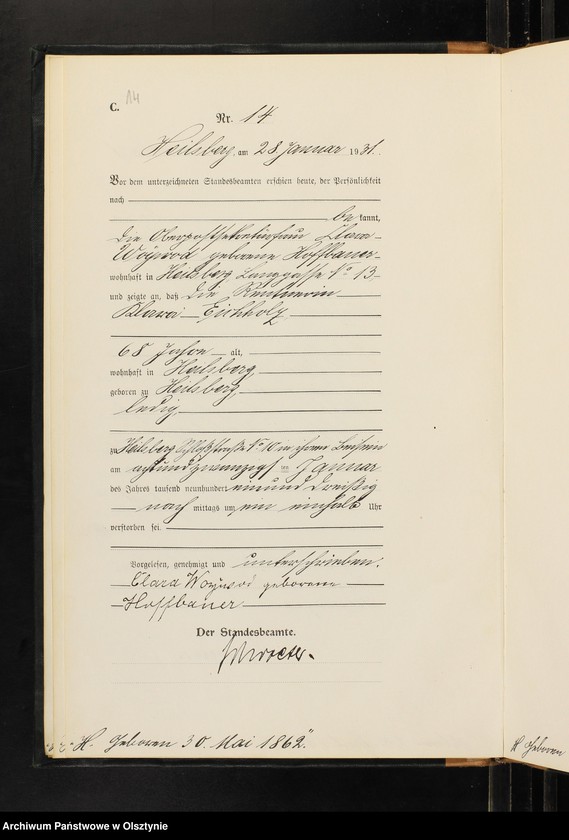 C. 14
Nr. 14
Heilsberg, am 28. Januar 1931.
Vor dem unterzeichneten Standesbeamten erschien heute, der Persönlichkeit
nach
be kannt,
die Oberpostsekretärsfrau Clara
Woywod geborene Hoffbauer
wohnhaft in Heilsberg, Langgasse No 13,
und zeigte an, daß die Rentnerin
Klara Eichholz,
68 Jahre alt,
wohnhaft in Heilsberg,
geboren zu Heilsberg,
ledig,
zu Heilsberg Schloßstraße No 10 in ihrem Beisein
am achtundzwanzigsten Januar
des Jahres tausend neunhundert einunddreißig
nach mittags um ein einhalb Uhr
verstorben sei.
Vorgelesen, genehmigt und unterschrieben.
Clara Woywod geborene
Hoffbauer
Der Standesbeamte.
H. Geboren 30. Mai 1862."
H Geboren
Archiwum Państwowe w Olsztynie